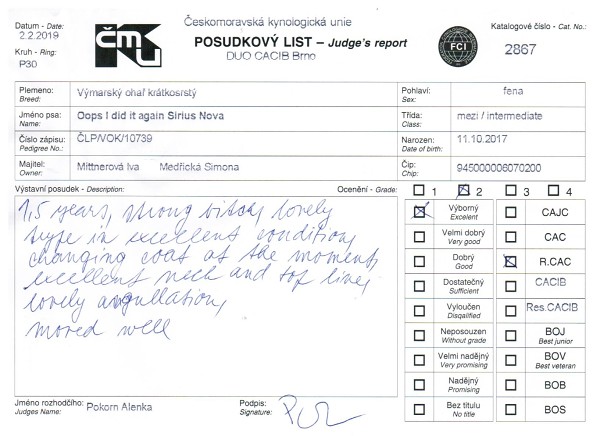 Datum - Date:
2.2.2019
Kruh - Ring:
P30
ČMKU
Českomoravská kynologická unie
POSUDKOVÝ LIST – Judge's report
DUO CACIB Brno
FCI
Katalogové číslo - Cat. No.:
2867
Plemeno:
Breed:
Výmarský ohař krátkosrstý
Pohlaví:
Sex:
fena
Jméno psa:
Name:
Oops I did it again Sirius Nova
Třída:
Class:
mezi / intermediate
Číslo zápisu:
Pedigree No.:
ČLP/VOK/10739
Narozen:
Date of birth:
11.10.2017
Majitel:
Owner:
Mittnerová Iva Medřická Simona
Čip:
Chip:
945000006070200
Výstavní posudek - Description:
Ocenění - Grade:
1 2 3 4
1,5 years, strong bitch, lovely
type in excellent condition,
changing coat at the moment,
excellent neck and top line,
lovely angullation,
moved well
Výborný
Excelent
CAJC
Velmi dobrý
Very good
CAC
Dobrý
Good
R.CAC
Dostatečný
Sufficient
CACIB
Vyloučen
Disqalified
Res.CACIB
Neposouzen
Without grade
BOJ
Best junior
Velmi nadějný
Very promising
BOV
Best veteran
Nadějný
Promising
BOB
Bez titulu
No title
BOS
Jméno rozhodčího:
Judges Name:
Pokorn Alenka
Podpis:
Signature: